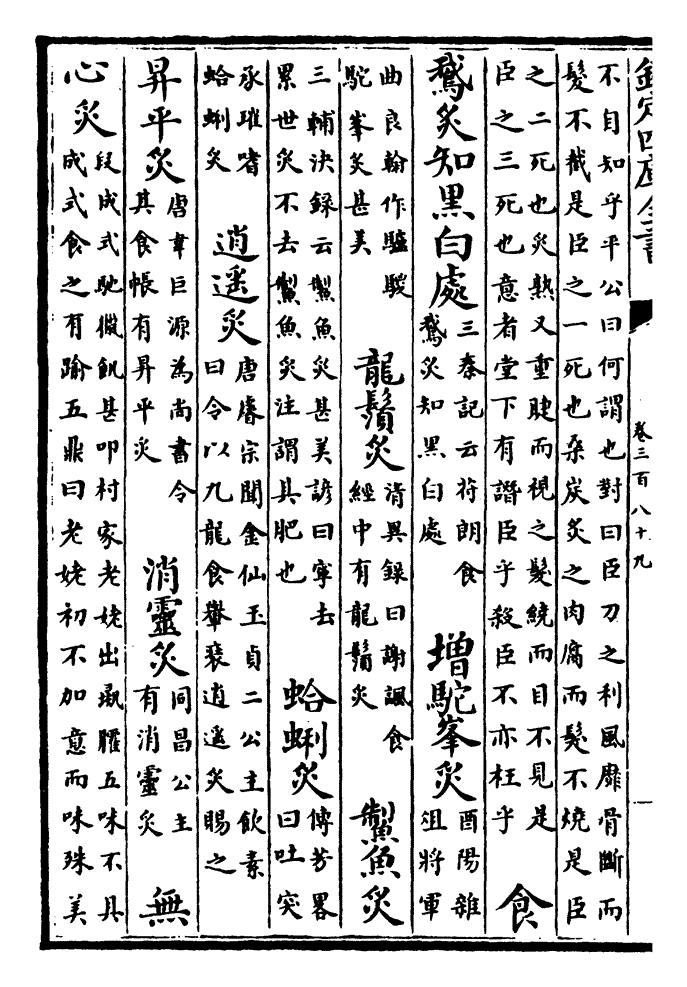 欽定四庫全書
卷三百八十九
不自知乎平公曰何謂也對曰臣刀之利風靡骨斷而
髮不截是臣之一死也桑炭炙之肉腐而髮不燒是臣
之二死也炙熟又重睫而視之髮繞而目不見是
臣之三死也意者堂下有譖臣乎殺臣不亦枉乎
食
鵞炙知黑白處
三秦記云苻朗食
鵞炙知黑白處
增駝峯炙
酉陽雜
俎將軍
曲良翰作驢駿
駝峯炙甚美
龍鬚炙
清異録曰謝諷食
經中有龍鬚炙
䱥魚炙
三輔決録云䱥魚炙甚美諺曰寧去
累世炙不去䱥魚炙注謂其肥也
蛤蜊炙
傳芳畧
曰吐突
承璀嗜
蛤蜊炙
逍遥炙
唐睿宗聞金仙玉貞二公主飲素
曰令以九龍食轝裝逍遥炙賜之
昇平炙
唐韋巨源為尚書令
其食帳有昇平炙
消靈炙
同昌公主
有消靈炙
無
心炙
段成式馳獵飢甚叩村家老姥出彘臛五味不具
成式食之有踰五鼎曰老姥初不加意而味殊美